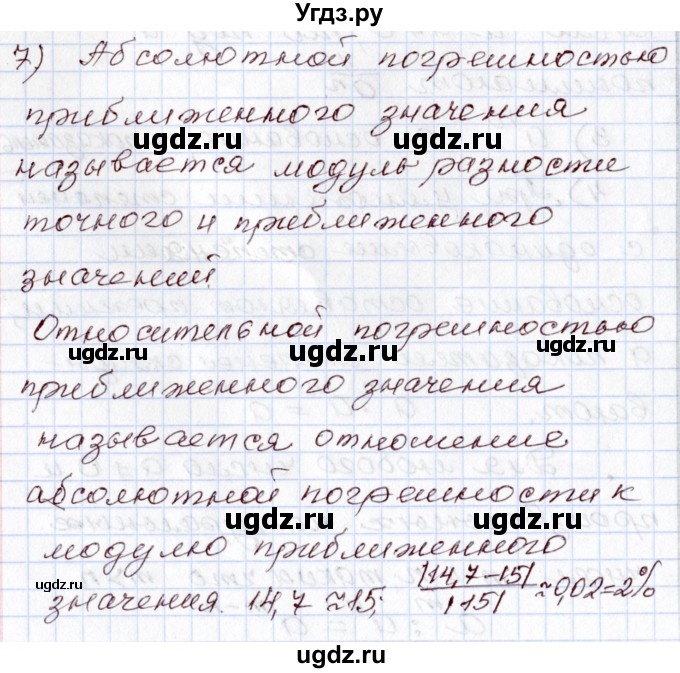 Угдз.ру
7) Абсолютной погрешностью
ugdz.ru ugdz.ru
приближенного значения
называется модуль разности
ugdz.ru ugdz.ru
точного и приближенного
значений.
Относительной погрешностью
ugdz.ru ugdz.ru ugdz.ru
приближенного значения
называется отношение
абсолютной погрешности к
ugdz.ru ugdz.ru
модулю приближенного
ugdz.ru
значения. 14,7 ≈ 15; |14,7-15| / |15| ≈ 0,02 = 2%
ugdz.ru ugdz.ru
ugdz.ru